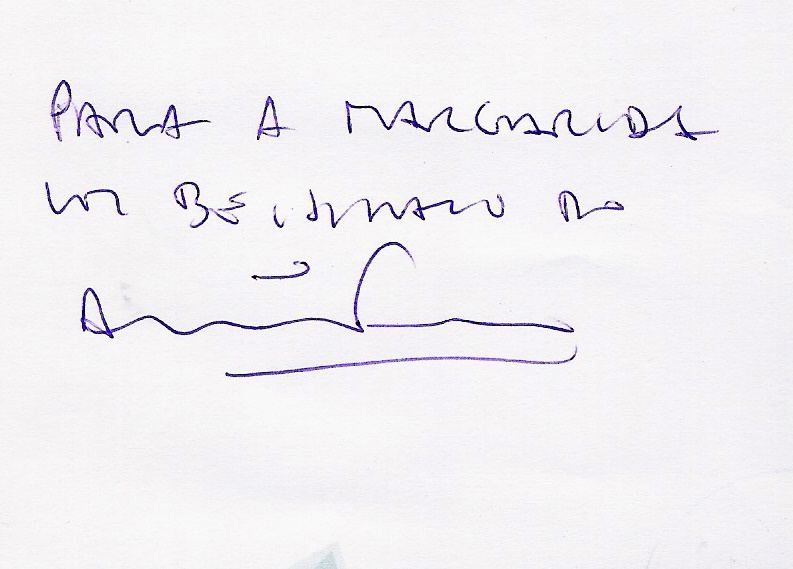 PARA A MARGARIDA
UM BEIJINHO DO